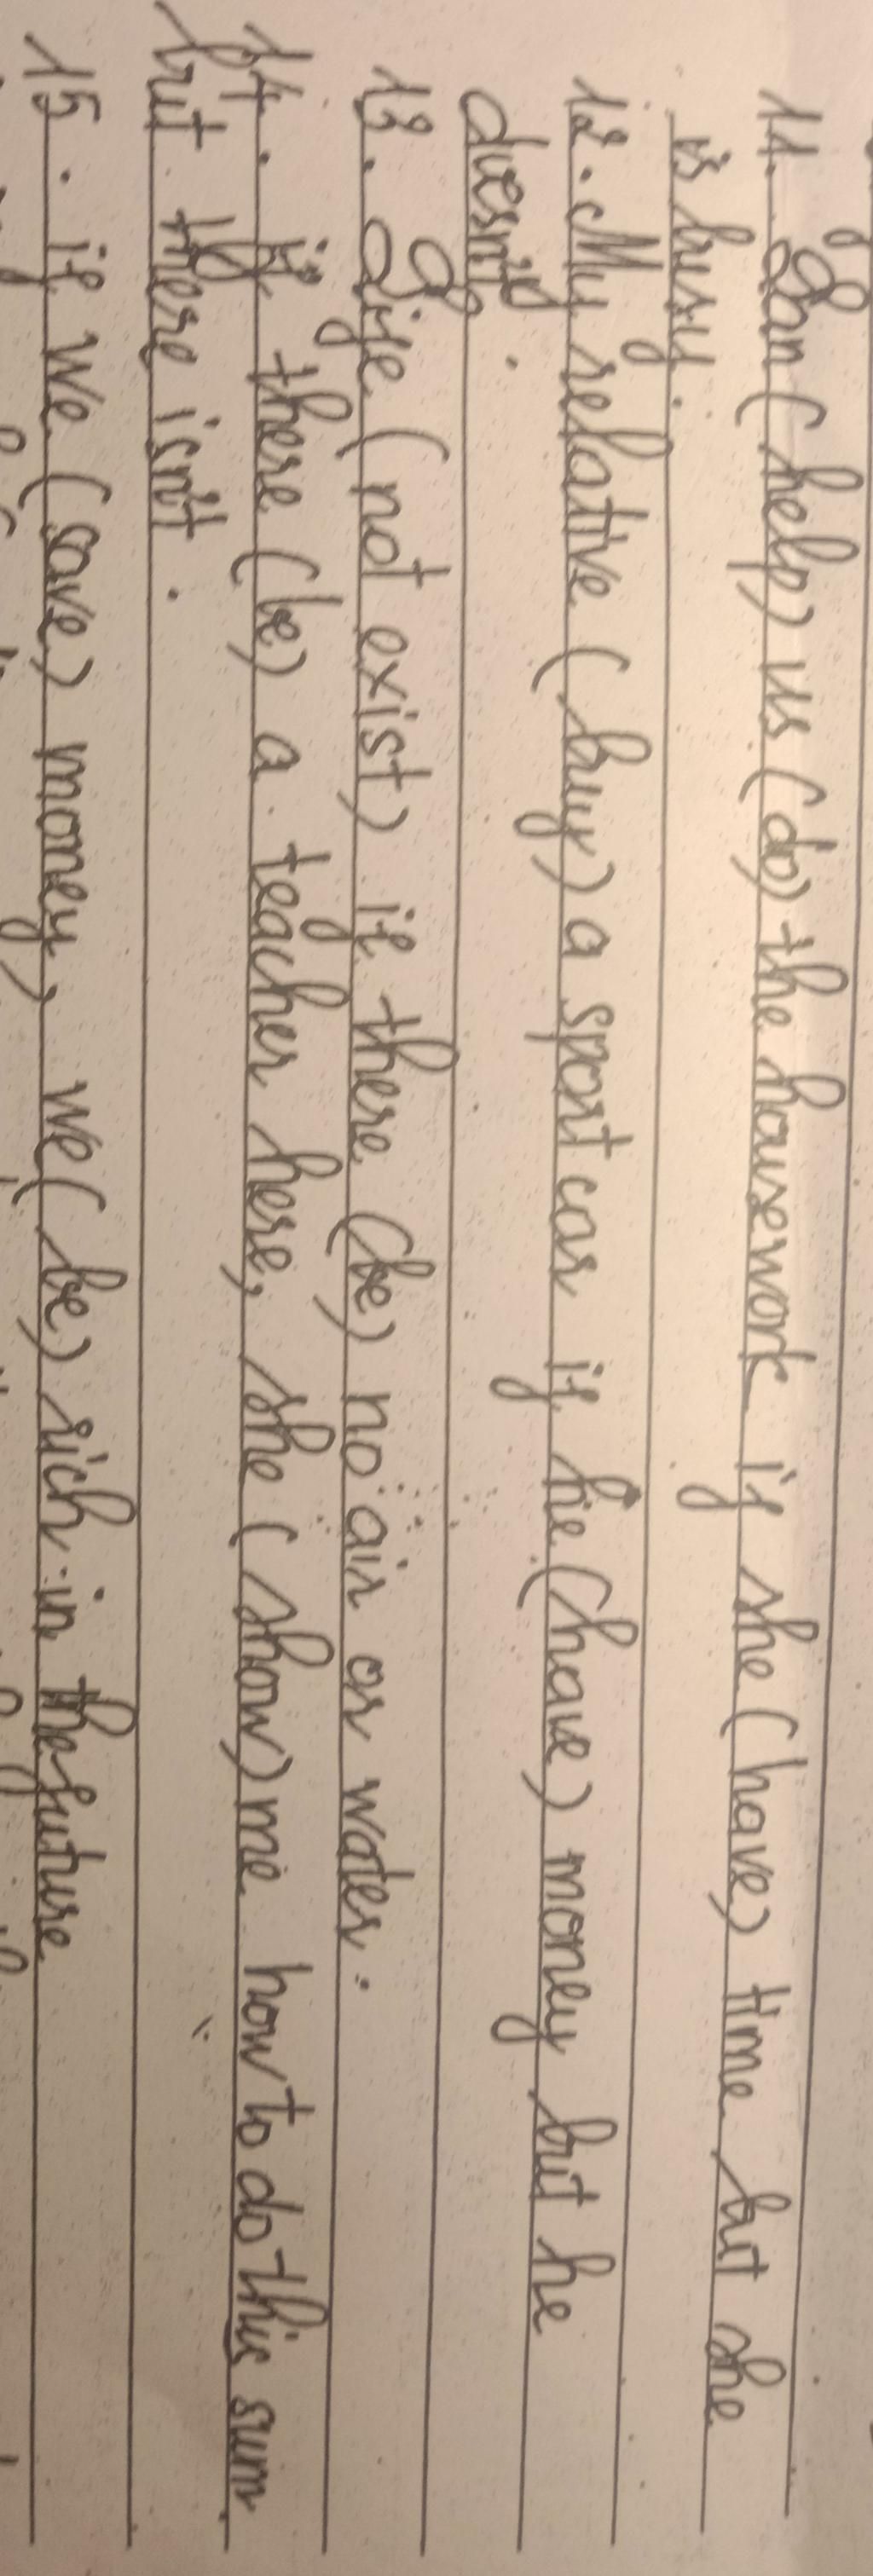 11. Lan (help) us (do) the housework if she (have) time but she
is busy.
12. My relative (buy) a sport car if he (have) money but he
doesn't.
13. Life (not exist) if there (be) no air or water.
14. if there (be) a teacher here, she (show) me how to do this sum
but there isn't.
15. if we (save) money, we (be) rich in the future